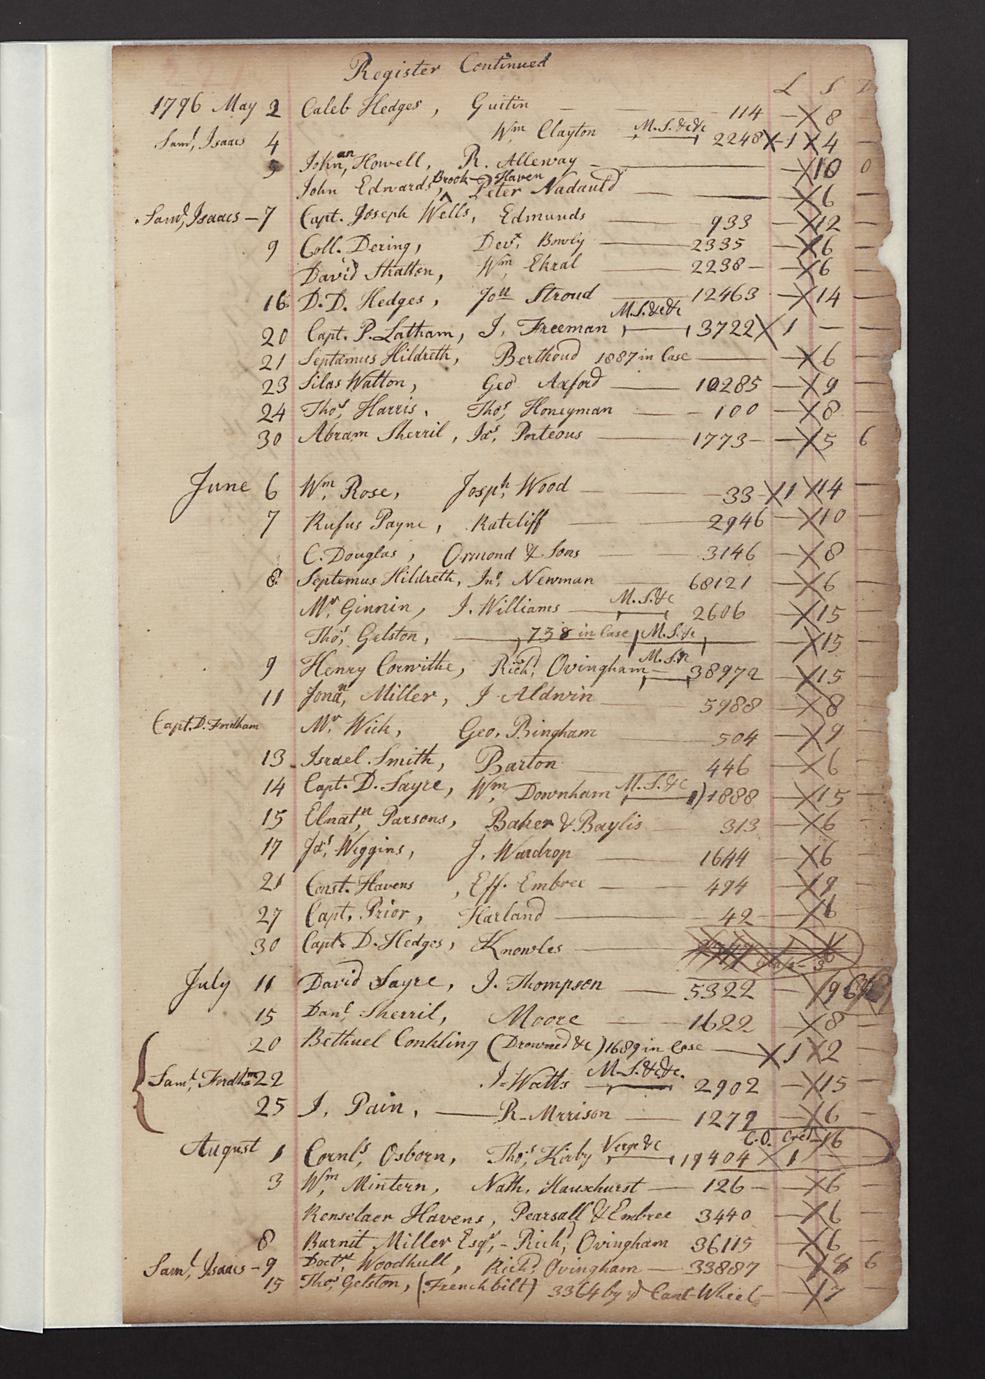 Register Continued
L S D
1796 May 2 Caleb Hedges, Guitin — 114 — 8
Saml. Isaacs 4 Wm Clayton M.S.&c&c 2248 1 4
5 Johnan. Howell, R. Alleway — 10 0
John Edwards, Brook-Haven Peter Nadauld — 6
Saml. Isaacs — 7 Capt. Joseph Wells, Edmunds — 933 — 12
9 Coll. Dering, Devt. Bowly — 2335 — 6
David Stratten, Wm Ekral — 2238 — 6
16 D.D. Hedges, Jos Stroud — 12463 — 14
20 Capt. P. Latham, J. Freeman M.S.&c&c 3722 1 —
21 Septamus Hildreth, Berthoud 1887 in Case — 6
23 Silas Watton, Geo Axford — 10285 — 9
24 Thos. Harris, Thos. Honeyman — 100 — 8
30 Abram Sherril, Jas. Porteous — 1773 — 5 6
June 6 Wm. Rose, Josph. Wood — 33 1 14
7 Rufus Payne, Ratcliff — 2946 — 10
C. Douglas, Ormond & Sons — 3146 — 8
8 Septemus Hildreth, Jno. Newman 68121 — 6
Mr. Ginnin, J. Williams — M.S.&c 2606 — 15
Thos. Gelston, — 738 in Case M.S.&c — 15
9 Henry Corwithe, Richd. Ovingham M.S.&c 38972 — 15
11 Jonan. Miller, J Aldwin 5988 — 8
Capt. D. Fordham Mr. Wick, Geo. Bingham 504 — 9
13 Israel Smith, Barton 446 — 6
14 Capt. D. Sayre, Wm. Downham M.S.&c 1888 — 15
15 Elnatn. Parsons, Baker & Baylis 313 — 6
17 Jas. Wiggins, J. Wardrop 1644 — 6
21 Const. Havens, Eff. Embree — 494 — 9
27 Capt. Prior, Harland — 42 — 6
30 Capt. D. Hedges, Knowles —
July 11 David Sayre, J. Thompson — 5322 — 9
15 Danl. Sherril, Moore — 1622 — 8
20 Bethuel Conkling (Drowned &c) 1689 in Case — 1 2
Saml. Fordham 22 J. Watts M.S.&c&c. 2902 — 15
25 J. Pain, — R. Mrrison — 1279 — 6
C.O. Cred — 16
August 1 Cornls. Osborn, Thos. Kirby Verge &c 19404 1
3 Wm. Mintern, Nath. Hauxhurst — 126 — 6
Renselaer Havens, Pearsall & Embree 3440 — 6
8 Burnit Miller Esqr. — Richd. Ovingham 36115 — 6
Saml. Isaacs — 9 Doctr. Woodhull, Richd. Ovingham — 33887 — 18 6
15 Thos. Gelston, (French bilt) 3364 by ye Cant Wheel — 7